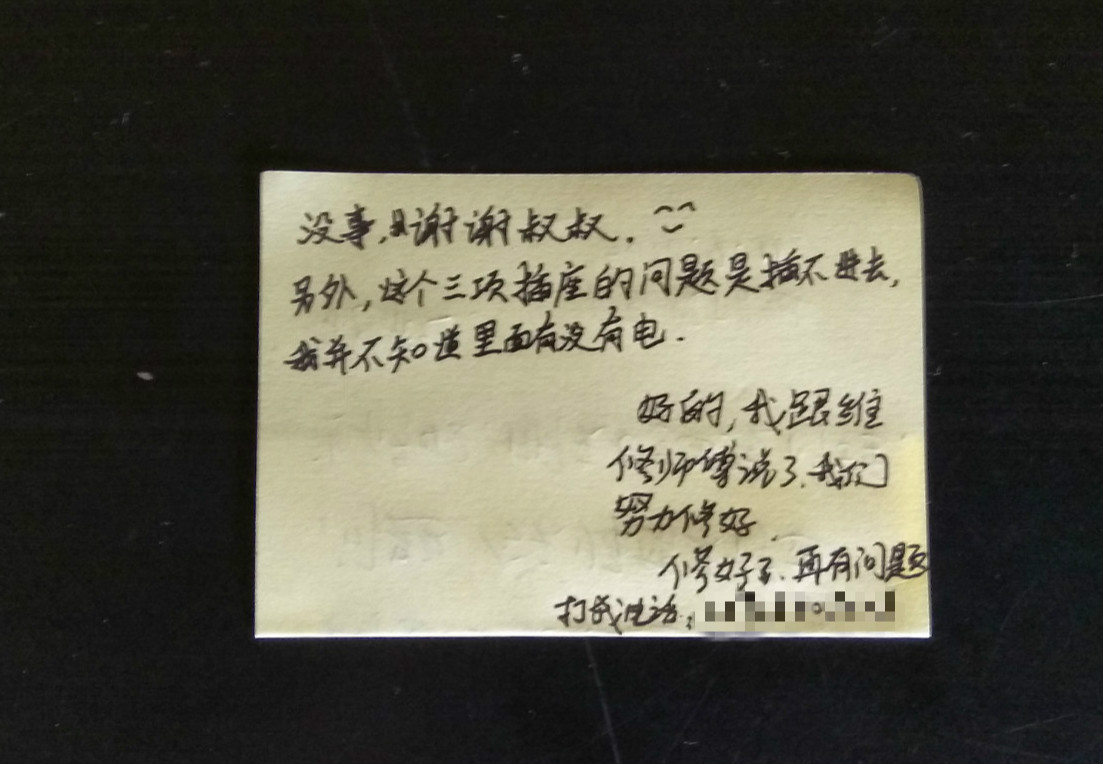 没事,谢谢叔叔.
另外,这个三项插座的问题是插不进去,
我并不知道里面有没有电.
好的,我跟维
修师傅说了.我们
努力修好.
修好了.再有问题
打我电话: